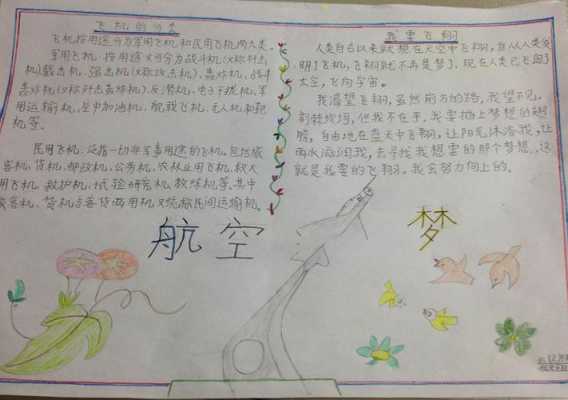 飞机的分类
飞机按用途分为军用飞机和民用飞机两大类。
军用飞机,按用途又可分为战斗机(又称歼击
机)截击机、强击机(又称攻击机)、轰炸机、战斗
轰炸机(又称歼击轰炸机)、反潜机、电子干扰机、军
用运输机、空中加油机、舰载飞机、无人机和靶
机等。
民用飞机,泛指一切非军事用途的飞机,包括旅
客机、货机、邮政机、公务机、农林业用飞机、救火
用飞机、救护机、试验研究机、教练机等。其中
旅客机、货机与客货两用机又统称民间运输机。
我要飞翔
人类自古以来就想在天空中飞翔,自从人类发
明了飞机,飞翔就不再是梦了,现在人类已飞向了
太空,飞向宇宙。
我渴望飞翔,虽然前方的路,我望不见。
荆棘坎坷,但我不在乎,我要插上梦想的翅
膀,自由地在蓝天中飞翔,让阳光沐浴我,让
雨水滋润我,去寻找我想要的那个梦想。这
就是我要的飞翔。我会努力向上的。
航空
梦